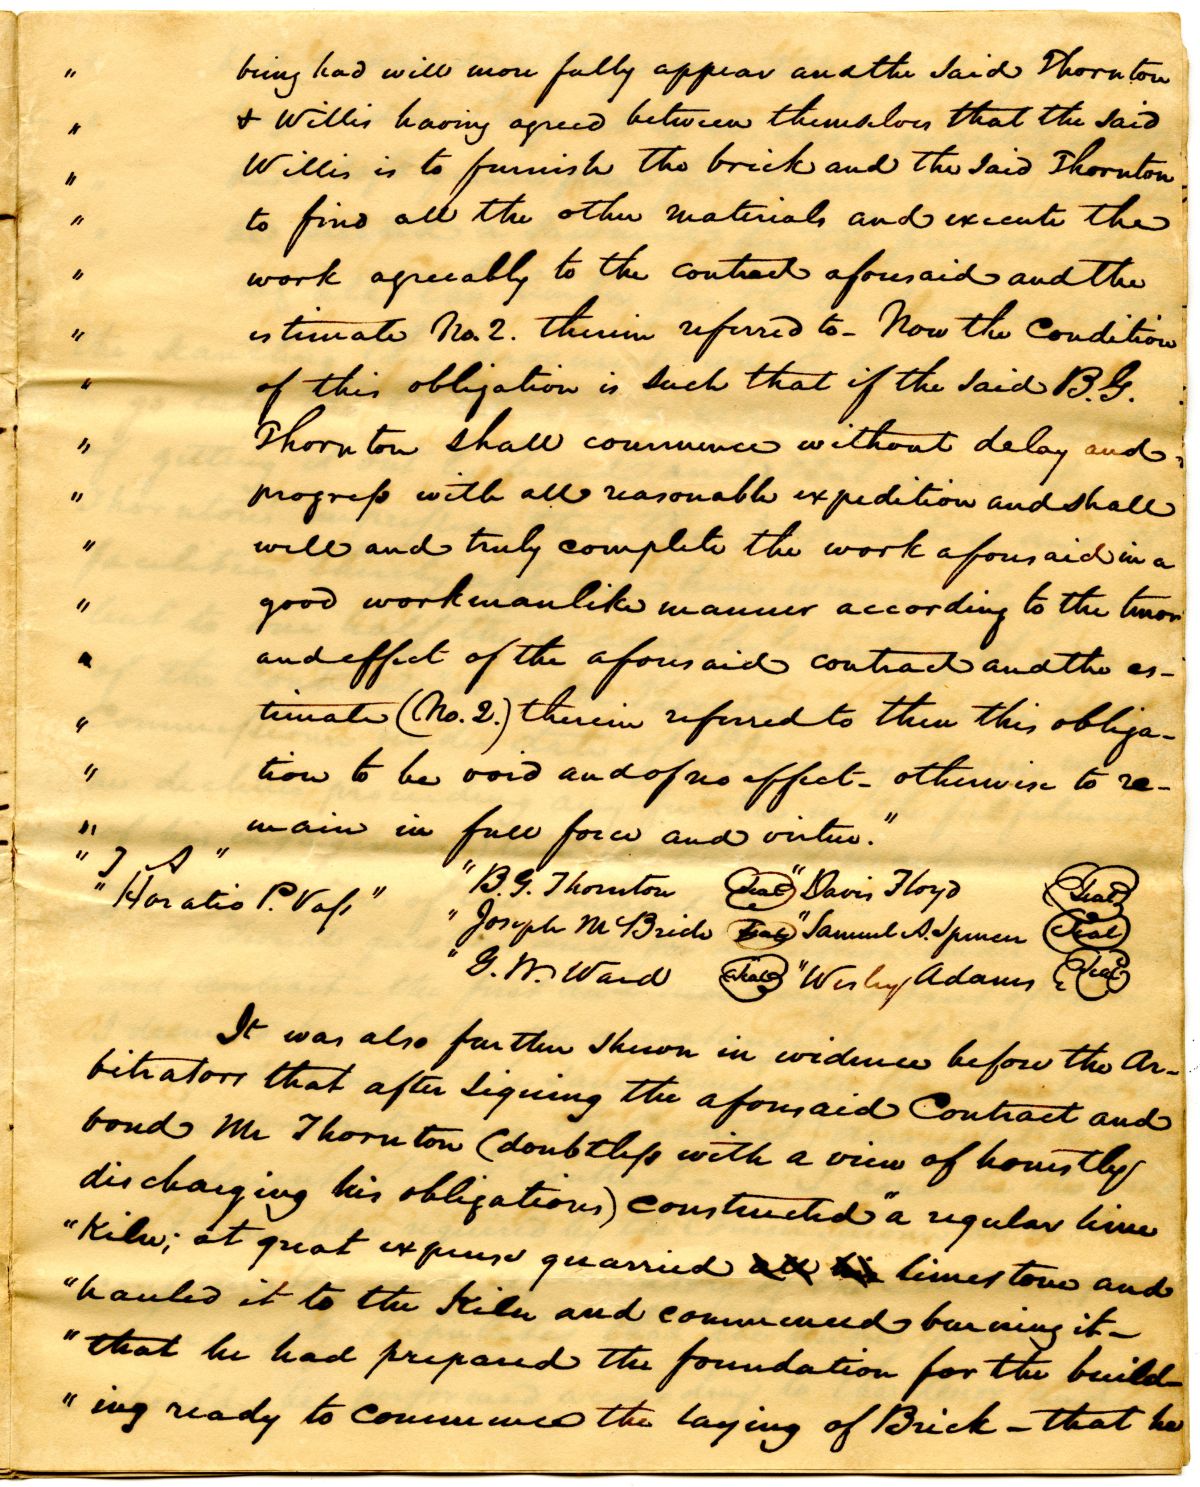 " being had will more fully appear and the said Thornton
" & Willis having agreed between themselves that the said
" Willis is to furnish the brick and the said Thornton
" to find all the other materials and execute the
" work agreeably to the contract aforesaid and the
" estimate No. 2. therein referred to - Now the Condition
" of this obligation is such that if the said B. G.
" Thornton shall commence without delay and
" progress with all reasonable expedition and shall
" well and truly complete the work aforesaid in a
" good workmanlike manner according to the tenor
" and effect of the aforesaid contract and the es-
" timate (No. 2.) therein referred to then this obliga-
" tion to be void and of no effect - otherwise to re-
" main in full force and virtue."
" T A "
" Horatio P. Vass " " B. G. Thornton Seal " Davis Floyd Seal
" Joseph McBride Seal " Samuel A. Spencer Seal
" G. W. Ward Seal " Wesley Adams Seal
It was also further shewn in evidence before the Ar-
bitrators that after signing the aforesaid Contract and
bond Mr Thornton (doubtless with a view of honestly
discharging his obligations) constructed "a regular lime
" Kiln; at great expense quarried all his limestone and
" hauled it to the Kiln and commenced burning it -
" that he had prepared the foundation for the build-
" ing ready to commence the laying of Brick - that he